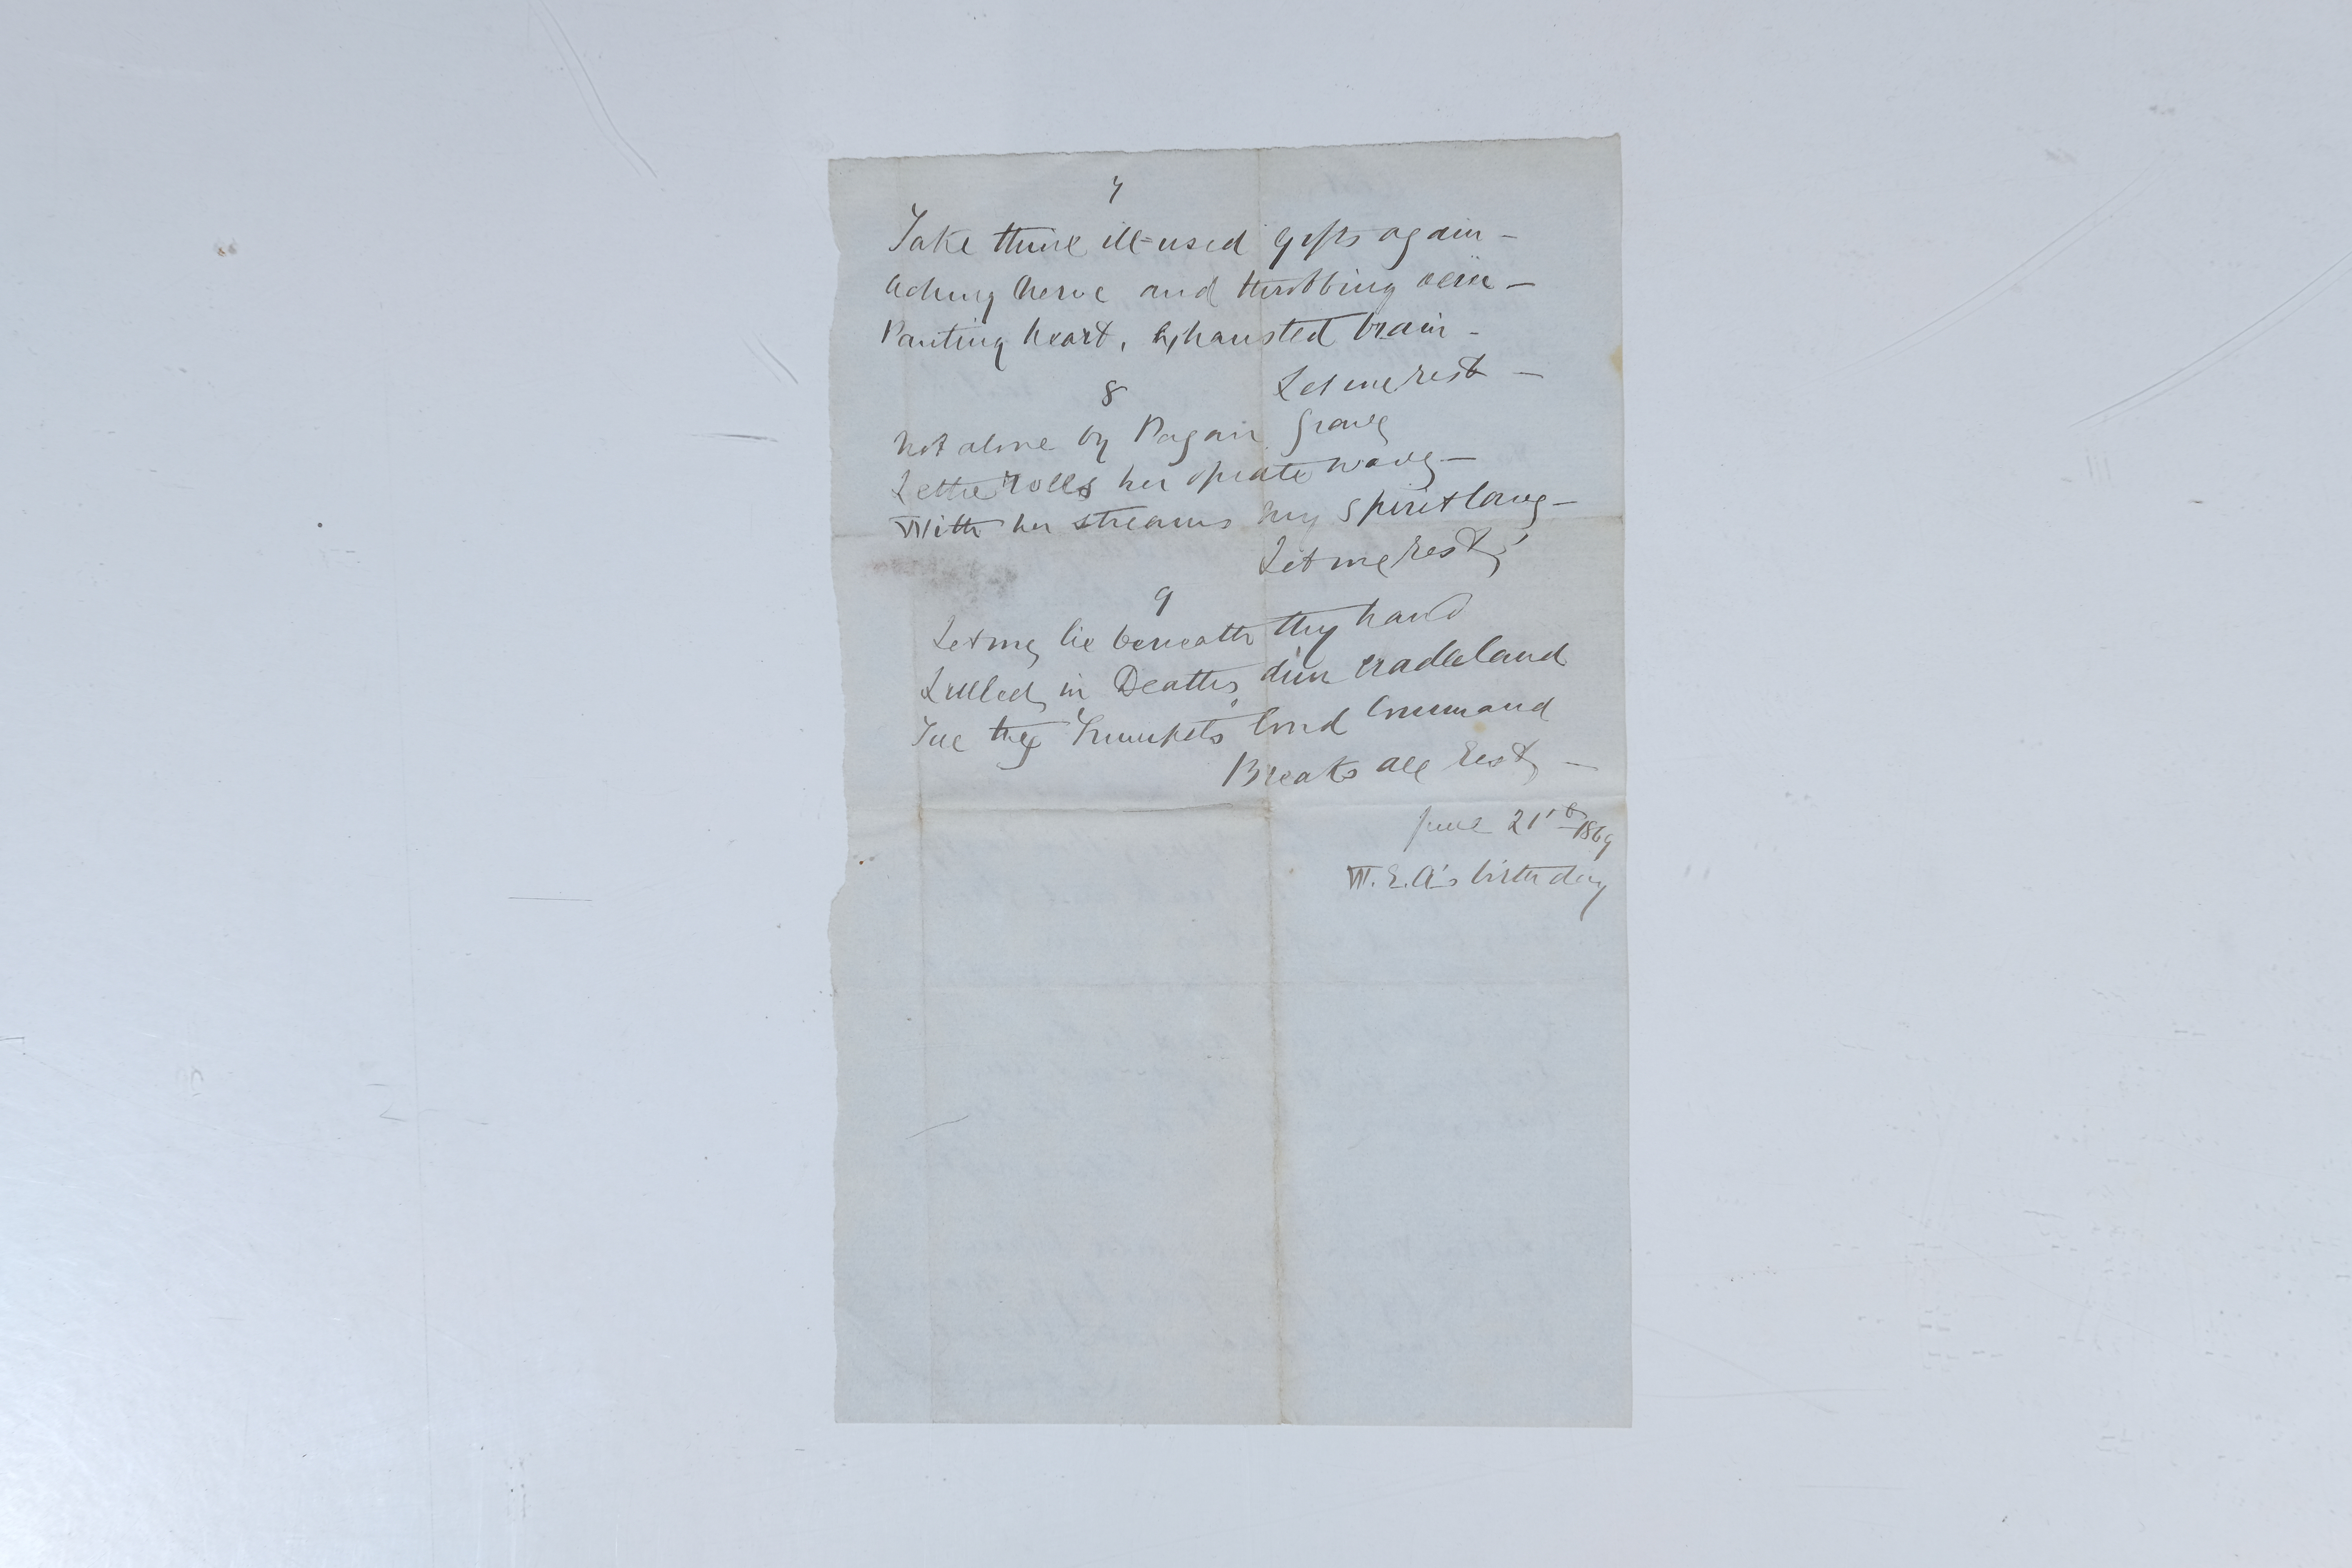 7
Take thine ill-used gifts again -
Aching nerve and throbbing vein -
Panting heart, Exhausted brain -
Let me rest -
8
Not alone by Pagan Grave
Lethe rolls her opiate wave -
With her streams my spirit lave -
Let me rest;
9
Let me lie beneath thy hand
Lulled in Death's dim cradleland
Till thy Trumpets loud Command
Breaks all Rest -
June 21st 1869
W. E. A's birthday